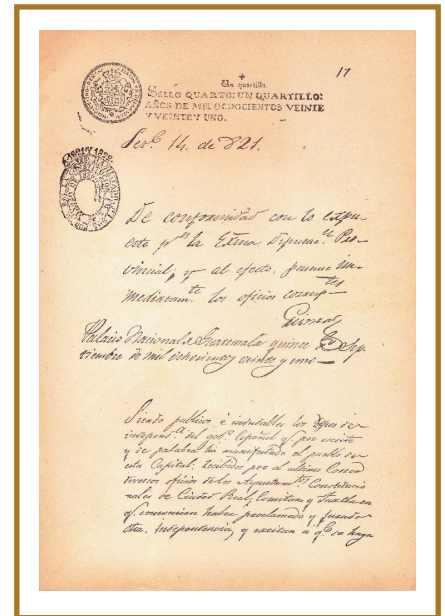 17
Un quartillo.
SELLO QUARTO: UN QUARTILLO:
AÑOS DE MIL OCHOCIENTOS VEINTE
Y VEINTE Y UNO.
14. de 821.
De conformidad con lo expu-
esto pr. la Exma. Diputac.n Pro-
vincial; y al efecto, pasense in-
mediatam.te los oficios corresp.tes
Palacio Nacional de Guatemala quince de Sep-
tiembre de mil ochocientos veinte y uno
Siendo publicos è indudables los deseos de
independ.a del gob.o Español q.e por escrito
y de palabra ha manifestado el pueblo de
esta Capital: recibidos por el ultimo Correo
diversos oficios de los Ayuntam.tos Constitucio
nales de Ciudad Real, Comitan, y Tuxtla en
q.e comunican haber proclamado y jurado
dha. Independencia, y excitan a q.e se haga